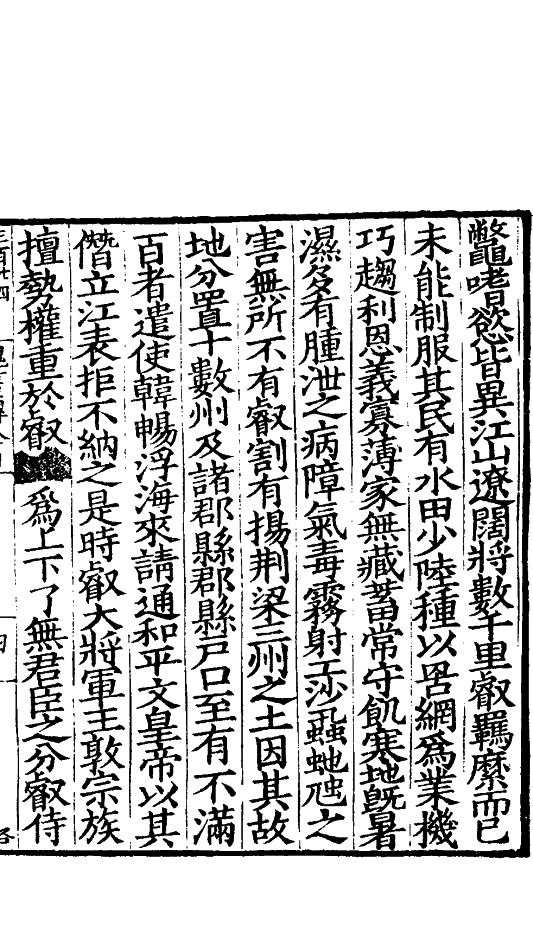 鼈嗜慾皆異江山遼闊將數千里叡羈縻而已
未能制服其民有水田少陸種以罟網爲業機
巧趨利恩義寡薄家無藏蓄常守飢寒地旣暑
濕多有腫泄之病障氣毒霧射工沙蝨虵虺之
害無所不有叡割有揚荆梁三州之土因其故
地分置十數州及諸郡縣郡縣戸口至有不滿
百者遣使韓暢浮海來請通和平文皇帝以其
僭立江表拒不納之是時叡大將軍王敦宗族
擅勢權重於叡 爲上下了無君臣之分叡侍